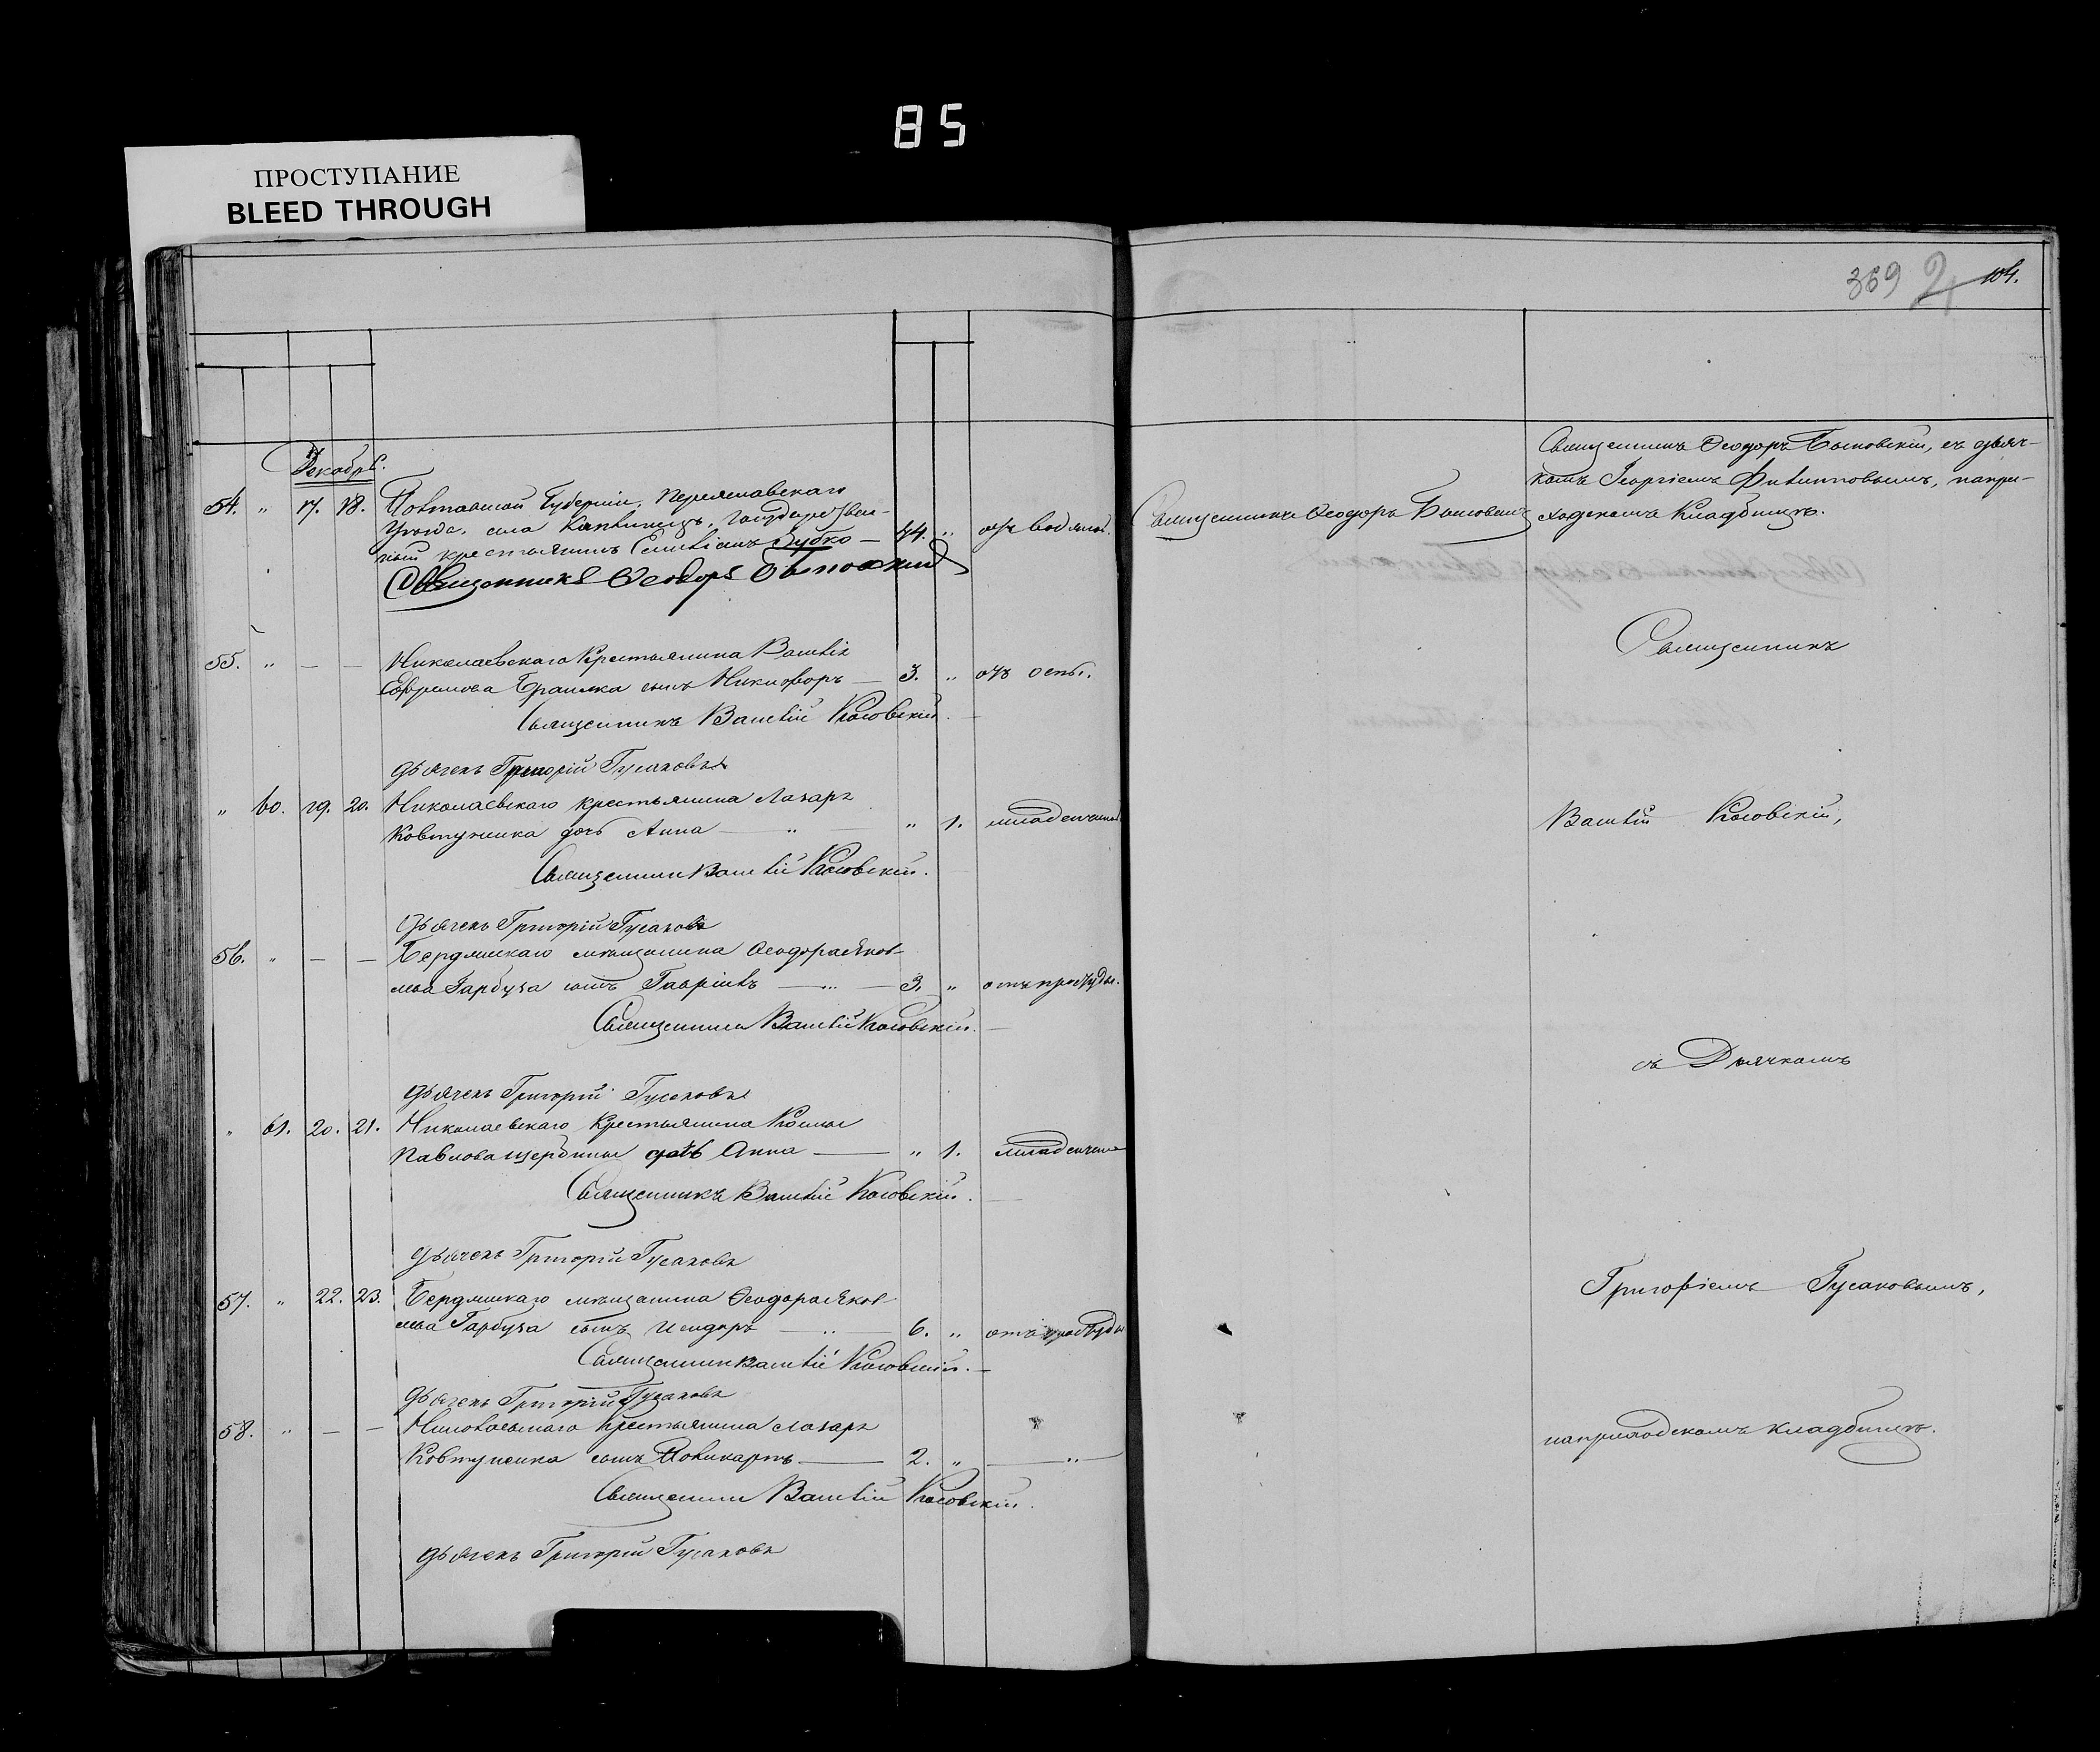 85
ПРОСТУПАНИЕ
BLEED THROUGH
369 104.
Декабрь.
54. " 17. 18. Полтавской Губерніи, Переяславскаго
Уѣзда, села Капинецъ, Государствен-
ный крестьянинъ Емиліанъ Зубко — 44. " отъ водяной.
Священникъ Ѳеодоръ
55. " — — Николаевскаго Крестьянина Василія
Ефремова сынъ Никифоръ — 3. " отъ оспы.
Священникъ Василій Косовскій.
Дьячекъ Григорій Гусаковъ
" 60. 19. 20. Николаевскаго крестьянина Лазаря
Ковтуненка дочь Анна — " " 1. младенческой
Священникъ Василій Косовскій.
Дьячекъ Григорій Гусаковъ
56. " — — Бердянскаго мѣщанина Ѳеодора Яков-
лева Гарбуза сынъ Гавріилъ — " — 3. " отъ простуды.
Священникъ Василій Косовскій. —
Дьячекъ Григорій Гусаковъ
" 61. 20. 21. Николаевскаго Крестьянина Космы
Павлова Щербины дочь Анна — " 1. младенческой
Священникъ Василій Косовскій.
Дьячекъ Григорій Гусаковъ
57. " 22. 23. Бердянскаго мѣщанина Ѳеодора Яков-
лева Гарбуза сынъ Исидоръ — " — 6. " отъ простуды
Священникъ Василій Косовскій. —
Дьячекъ Григорій Гусаковъ
58. " — — Николаевскаго Крестьянина Лазаря
Ковтуненка сынъ Поликарпъ — 2. " — " —
Священникъ Василій Косовскій.
Дьячекъ Григорій Гусаковъ
Священникъ Ѳеодоръ
Священникъ Ѳеодоръ съ дьяч-
комъ Георгіемъ Филипповымъ, на при-
ходскомъ Кладбищѣ.
Священникъ
Василій Косовскій,
съ Дьячкомъ
Григоріемъ Гусаковымъ,
на приходскомъ кладбищѣ.